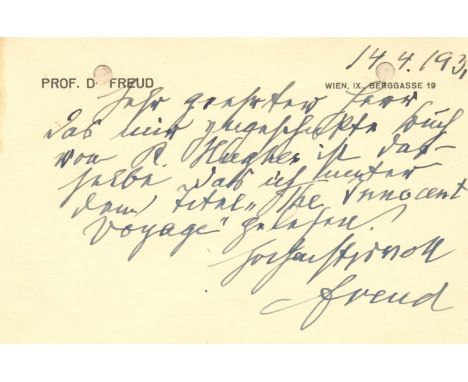 14.4.193
PROF. D FREUD
WIEN, IX. BERGGASSE 19
Sehr geehrter Herr
Das mir zugeschickte Buch
von R. Hughes ist das-
selbe das ich unter
dem Titel „The Innocent
Voyage" gelesen.
Hochachtungsvoll
Freud